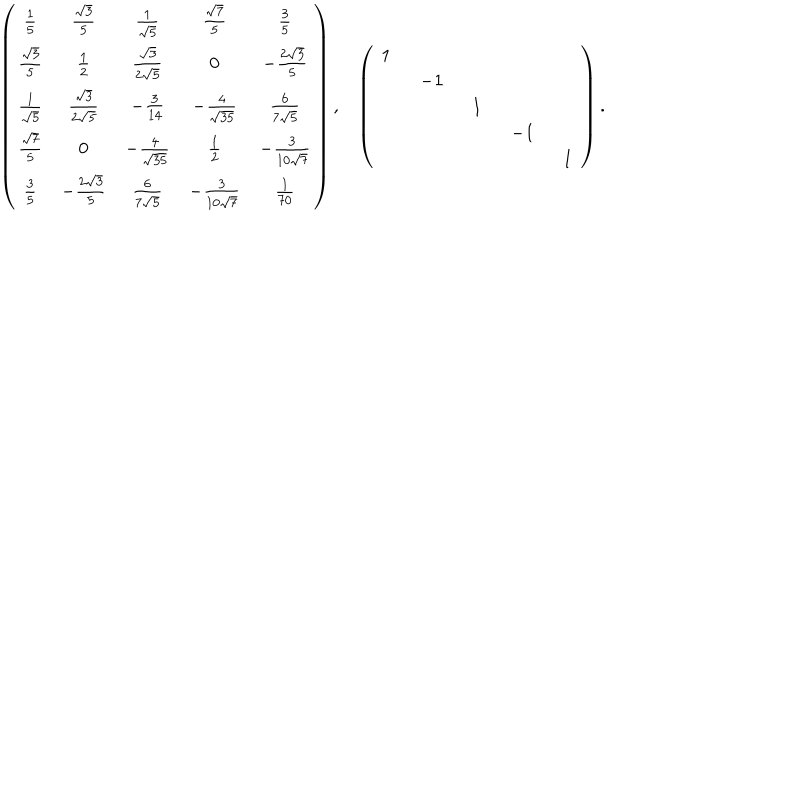 \left( \begin{array}{ccccc} \frac{1}{5} & \frac{\sqrt{3}}{5} & \frac{1}{\sqrt{5}} & \frac{\sqrt{7}}{5} & \frac{3}{5} \\ \frac{\sqrt{3}}{5} & \frac{1}{2} & \frac{\sqrt{3}}{2\sqrt{5}} & 0 & -\frac{2\sqrt{3}}{5} \\ \frac{1}{\sqrt{5}} & \frac{\sqrt{3}}{2\sqrt{5}} & -\frac{3}{14} & -\frac{4}{\sqrt{35}} & \frac{6}{7\sqrt{5}} \\ \frac{\sqrt{7}}{5} & 0 & -\frac{4}{\sqrt{35}} & \frac{1}{2} & -\frac{3}{10\sqrt{7}} \\ \frac{3}{5} & -\frac{2\sqrt{3}}{5} & \frac{6}{7\sqrt{5}} & -\frac{3}{10\sqrt{7}} & \frac{1}{70} \end{array} \right), \quad \left( \begin{array}{ccccc} 1 & & & & \\ & -1 & & & \\ & & 1 & & \\ & & & -1 & \\ & & & & 1 \end{array} \right).